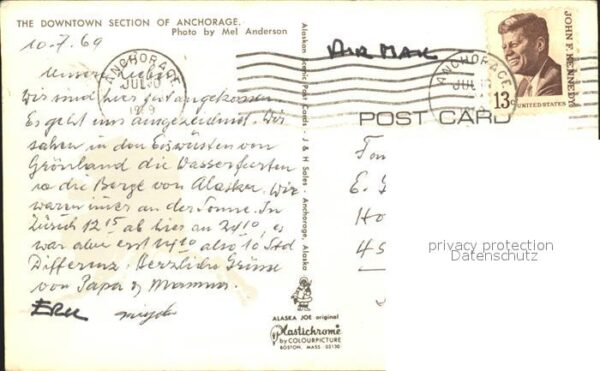 THE DOWNTOWN SECTION OF ANCHORAGE.
Photo by Mel Anderson
10.7.69
AIR MAIL
ANCHORAGE
JUL
ANCHORAGE
JUL
JOHN F. KENNEDY
13c
UNITED STATES
POST CARD
Unsere Lieben
Wir sind hier gut angekommen
Es geht uns ausgezeichnet. Wir
sahen in den Eiswüsten von
Grönland die
die Berge von Alaska. Wir
waren immer an der Sonne. In
Zürich 12 15 ab hier an
war aber erst also 10 Std
Differenz. Herzliche Grüsse
von Papa & Mamma.
Alaskan Scenic Post Cards - J & H Sales - Anchorage, Alaska
E.
Ho
privacy protection
Datenschutz
ALASKA JOE original
Plastichrome
by COLOURPICTURE
BOSTON, MASS. 02130